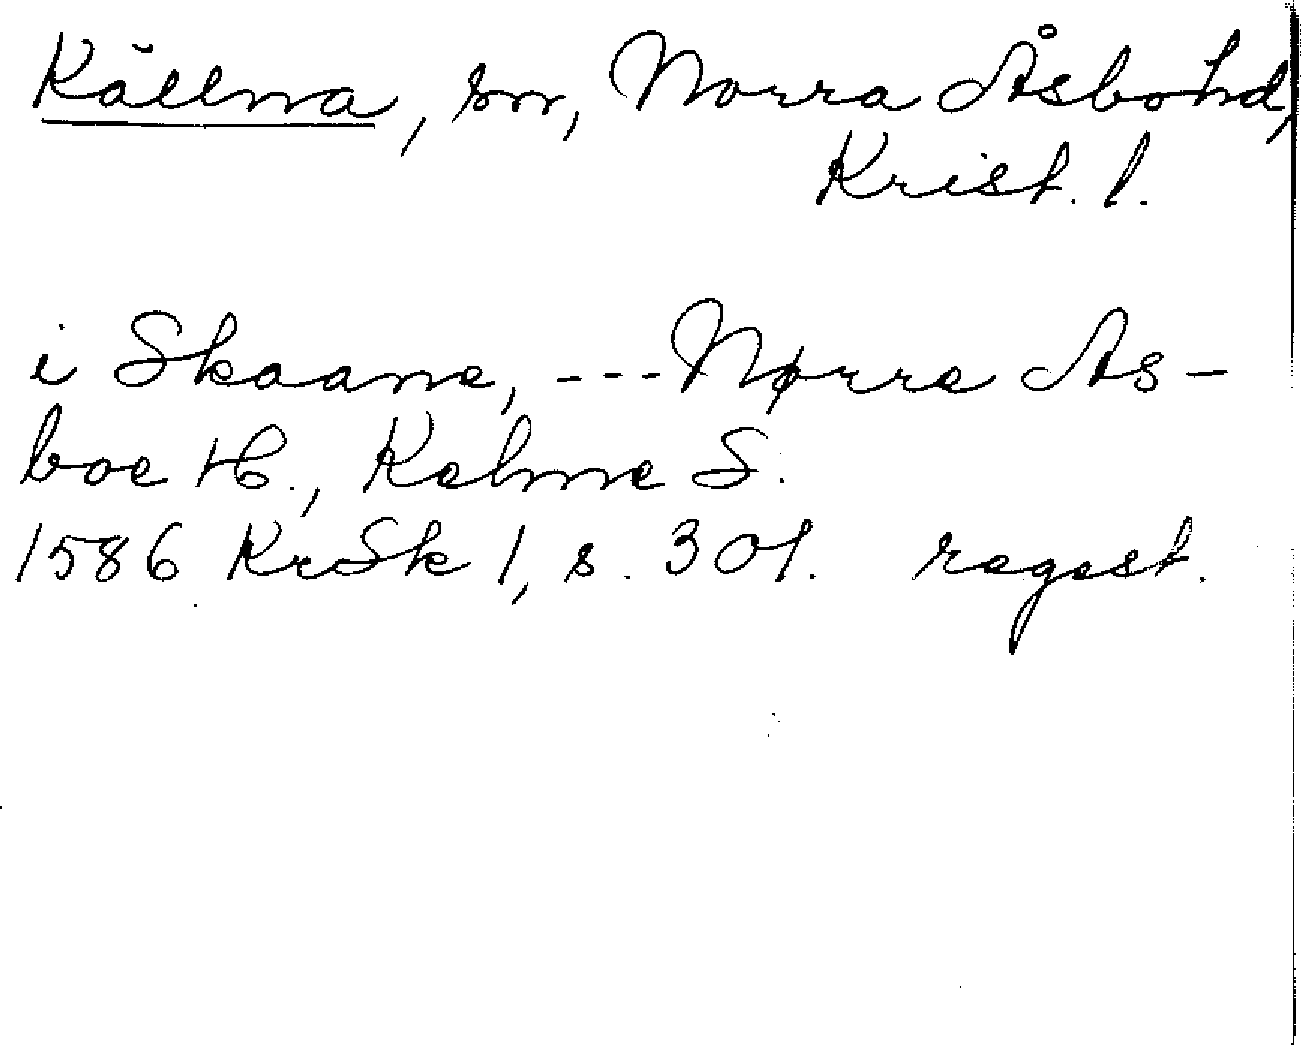 Källna, sn, Norra Åsbo hd,
Krist. l.
i Skaane, --- Nørre As-
boe H., Kelne S.
1586 KrSk 1, s. 301. regest.